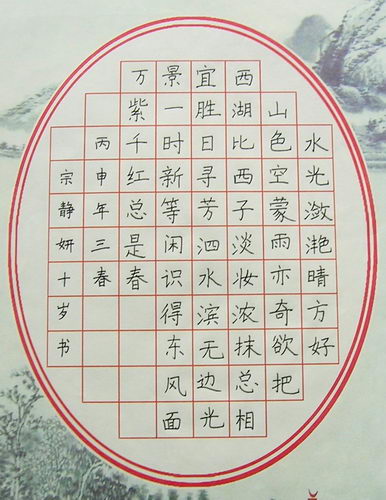 水光潋滟晴方好
山色空蒙雨亦奇欲把
西湖比西子淡妆浓抹总相
宜胜日寻芳泗水滨无边光
景一时新等闲识得东风面
万紫千红总是春
丙申年三春
宗静妍十岁书